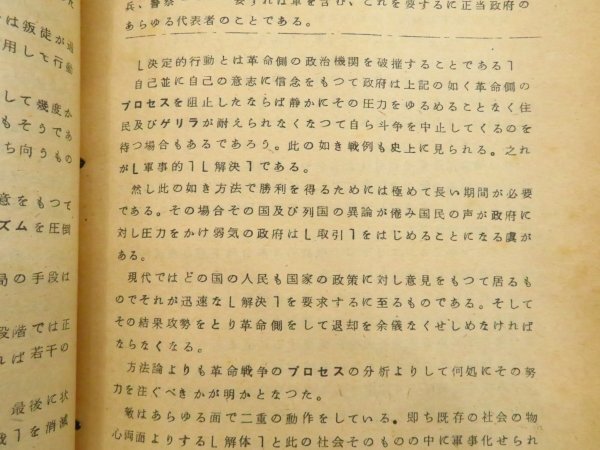 兵、警察
要すれば軍を含む、これを要するに正当政府の
あらゆる代表者のことである。
L決定的行動とは革命側の政治機関を破摧することである1
自己並に自己の意志に信念をもつて政府は上記の如く革命側の
プロセスを阻止したならば静かにその圧力をゆるめることなく住
民及びゲリラが耐えられなくなつて自ら斗争を中止してくるのを
待つ場合もあるであろう。此の如き戦例も史上に見られる。之れ
がL軍事的1L解決1である。
然し此の如き方法で勝利を得るためには極めて長い期間が必要
である。その場合その国及び列国の異論が倦み国民の声が政府に
対し圧力をかけ弱気の政府はL取引1をはじめることになる虞が
ある。
現代ではどの国の人民も国家の政策に対し意見をもつて居るも
のでそれが迅速なL解決1を要求するに至るものである。そして
その結果攻勢をとり革命側をして退却を余儀なくせしめなければ
ならなくなる。
方法論よりも革命戦争のプロセスの分析よりして何処にその努
力を注ぐべきかが明かとなつた。
敵はあらゆる面で二重の動作をしている。即ち既存の社会の物
心両面よりするL解体1と此の社会そのものの中に軍事化せられ
は叛徒が過
用して行動
して幾度か
もそうであ
ち向うもの
意をもつて
ズムを圧倒
局の手段は
段階では正
れば若干の
最後に状
戦1を消滅